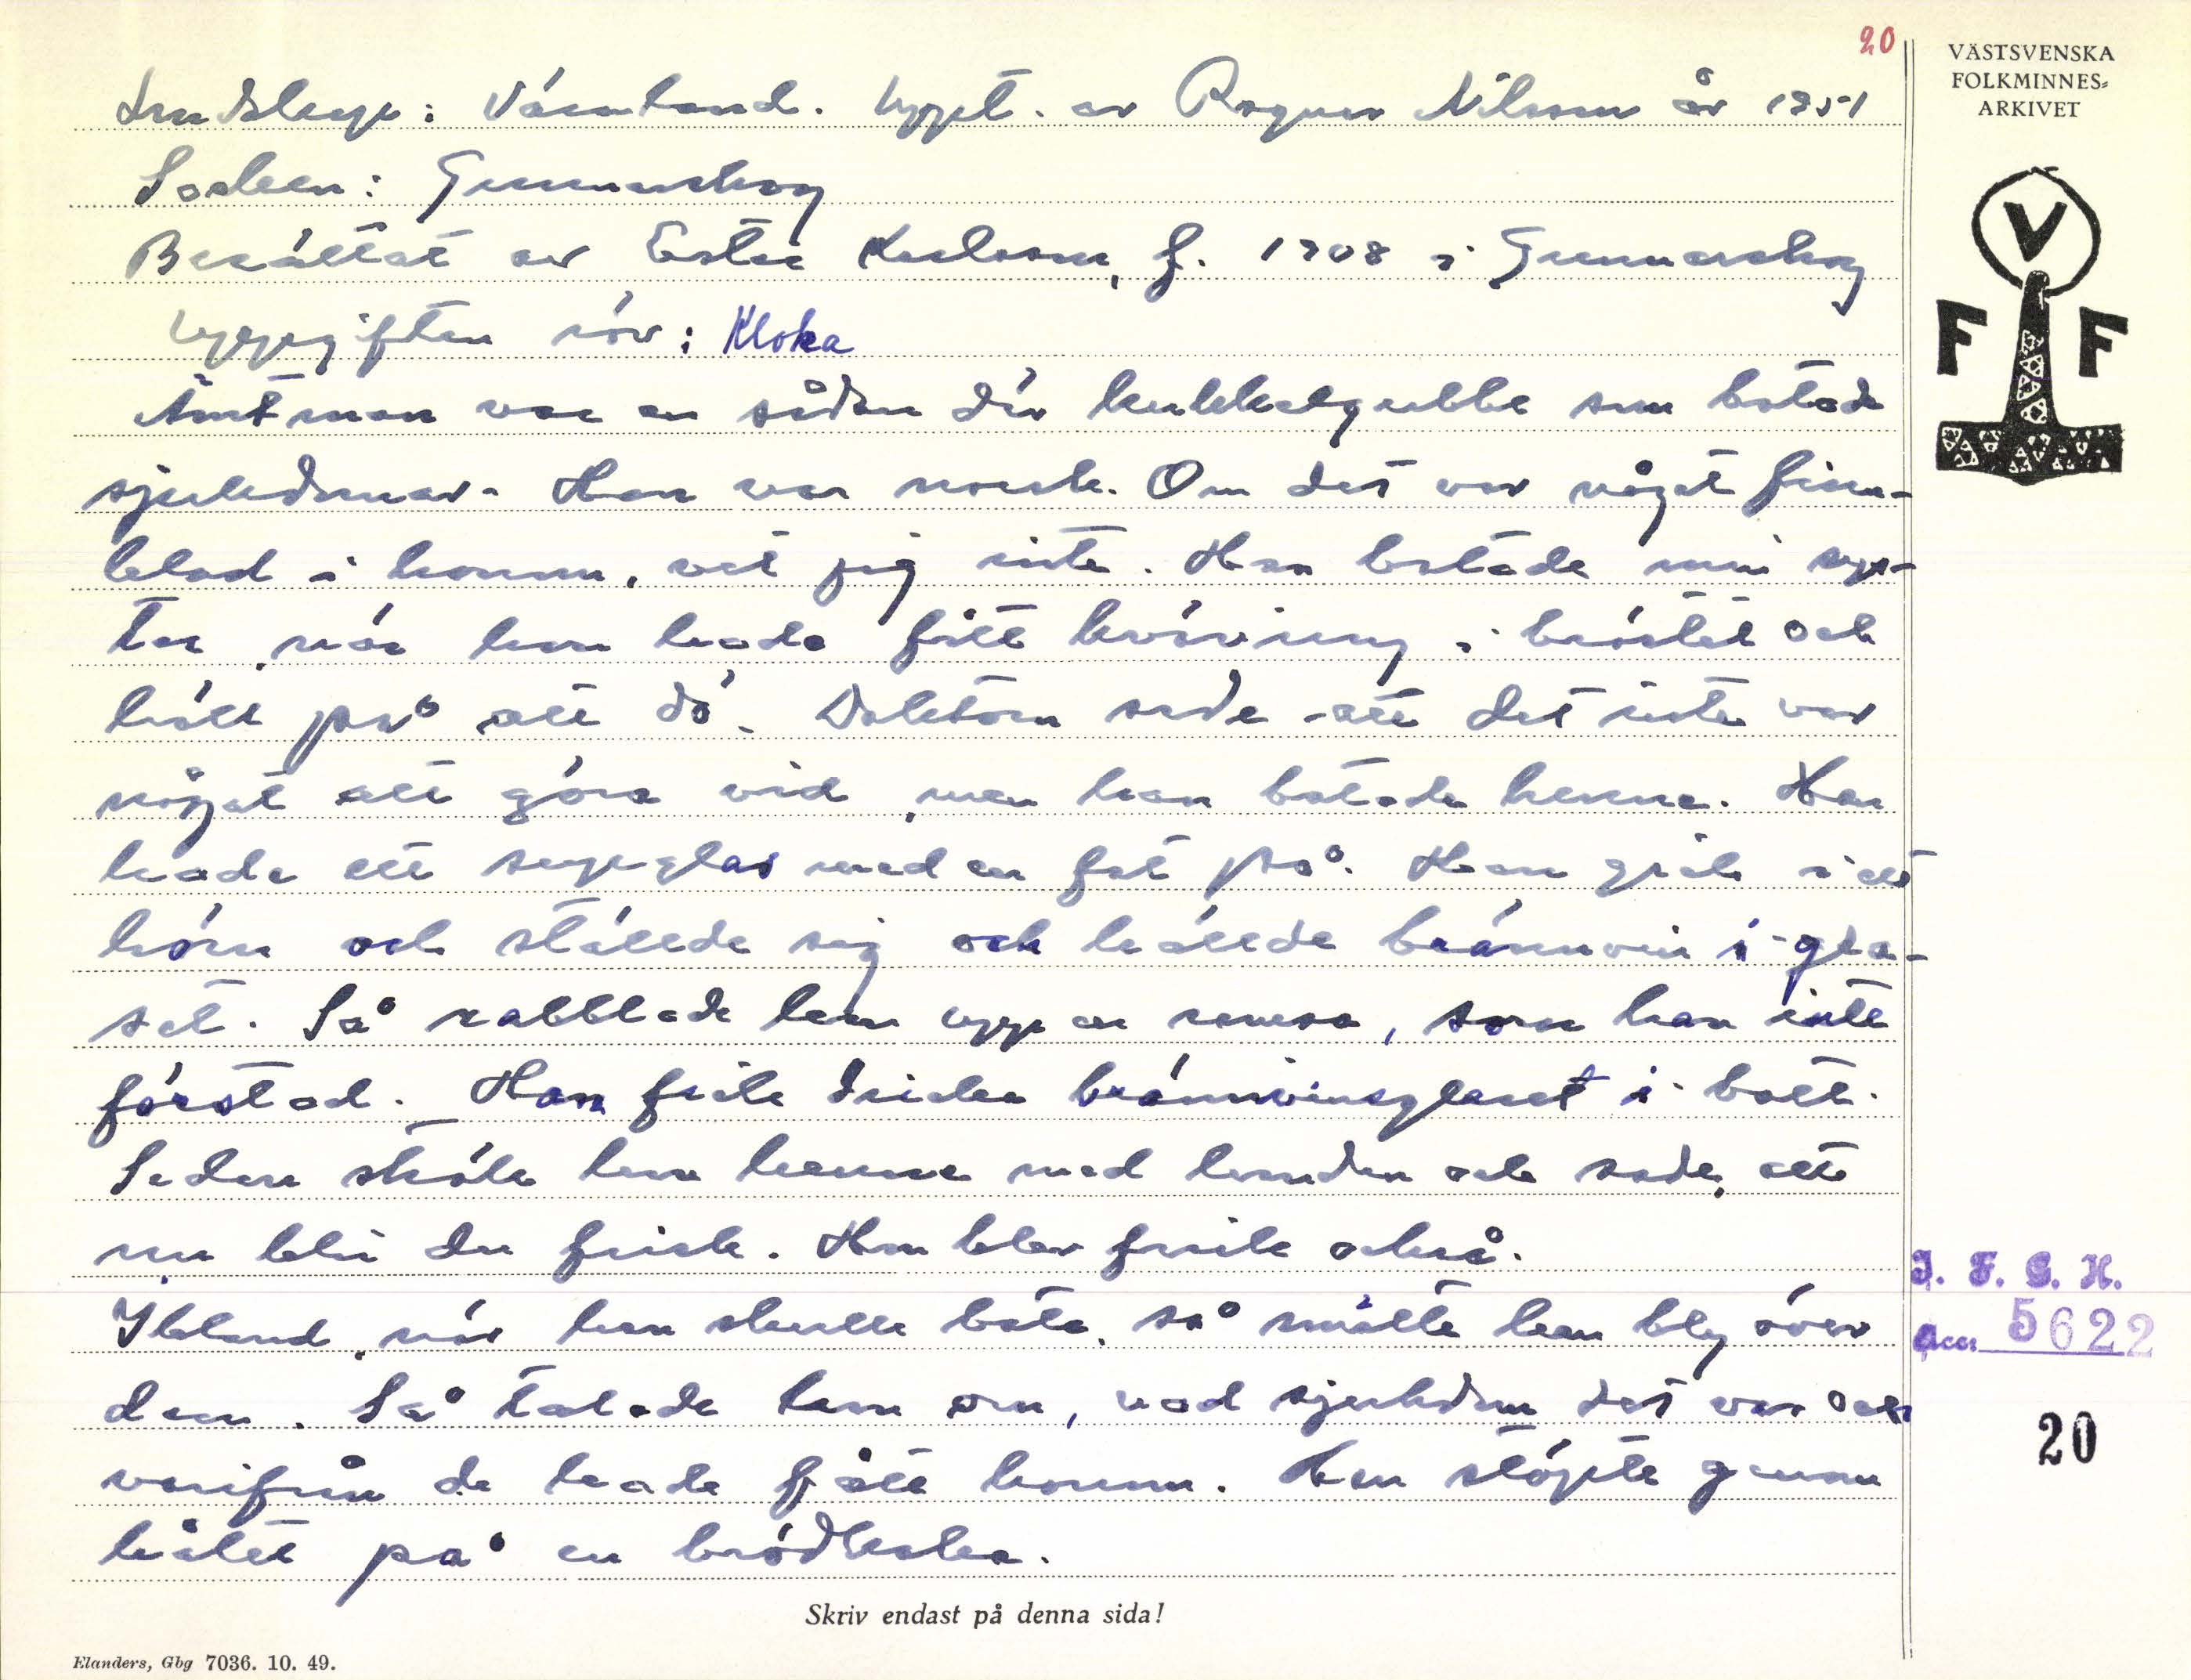 20
VÄSTSVENSKA
FOLKMINNES-
ARKIVET
Landskap: Värmland. Uppt. av Ragnar Nilsson år 1951
Socken: Gunnarskog
Berättat av Ester Karlsson, f. 1908 i Gunnarskog
Uppgiften rör: Kloka
V
F F
Åmtman var en sådan där kukkelgubbe som botade
sjukdomar. Han var norsk. Om det var något finn-
blod i honom, vet jag inte. Han botade min sys-
ter, när hon hade fått kvävning i bröstet och
höll på att dö. Doktorn sade att det inte var
något att göra vid, men han botade henne. Han
hade ett supglas med en fot på. Han gick i ett
hörn och ställde sig och hällde brännvin i gla-
set. Så rabblade han upp en ramsa, som han inte
förstod. Hon fick dricka brännvinsglaset i bott.
Sedan strök han henne med handen och sade, att
nu blir du frisk. Hon blev frisk också.
Ibland, när han skulle bota, så smälte han bly över
dem. Så talade han om, vad sjukdom det var och
varifrån de hade fått honom. Han stöpte genom
hålet på en brödkaka.
J. F. G. H.
Acc. 5622
20
Skriv endast på denna sida!
Elanders, Gbg 7036. 10. 49.